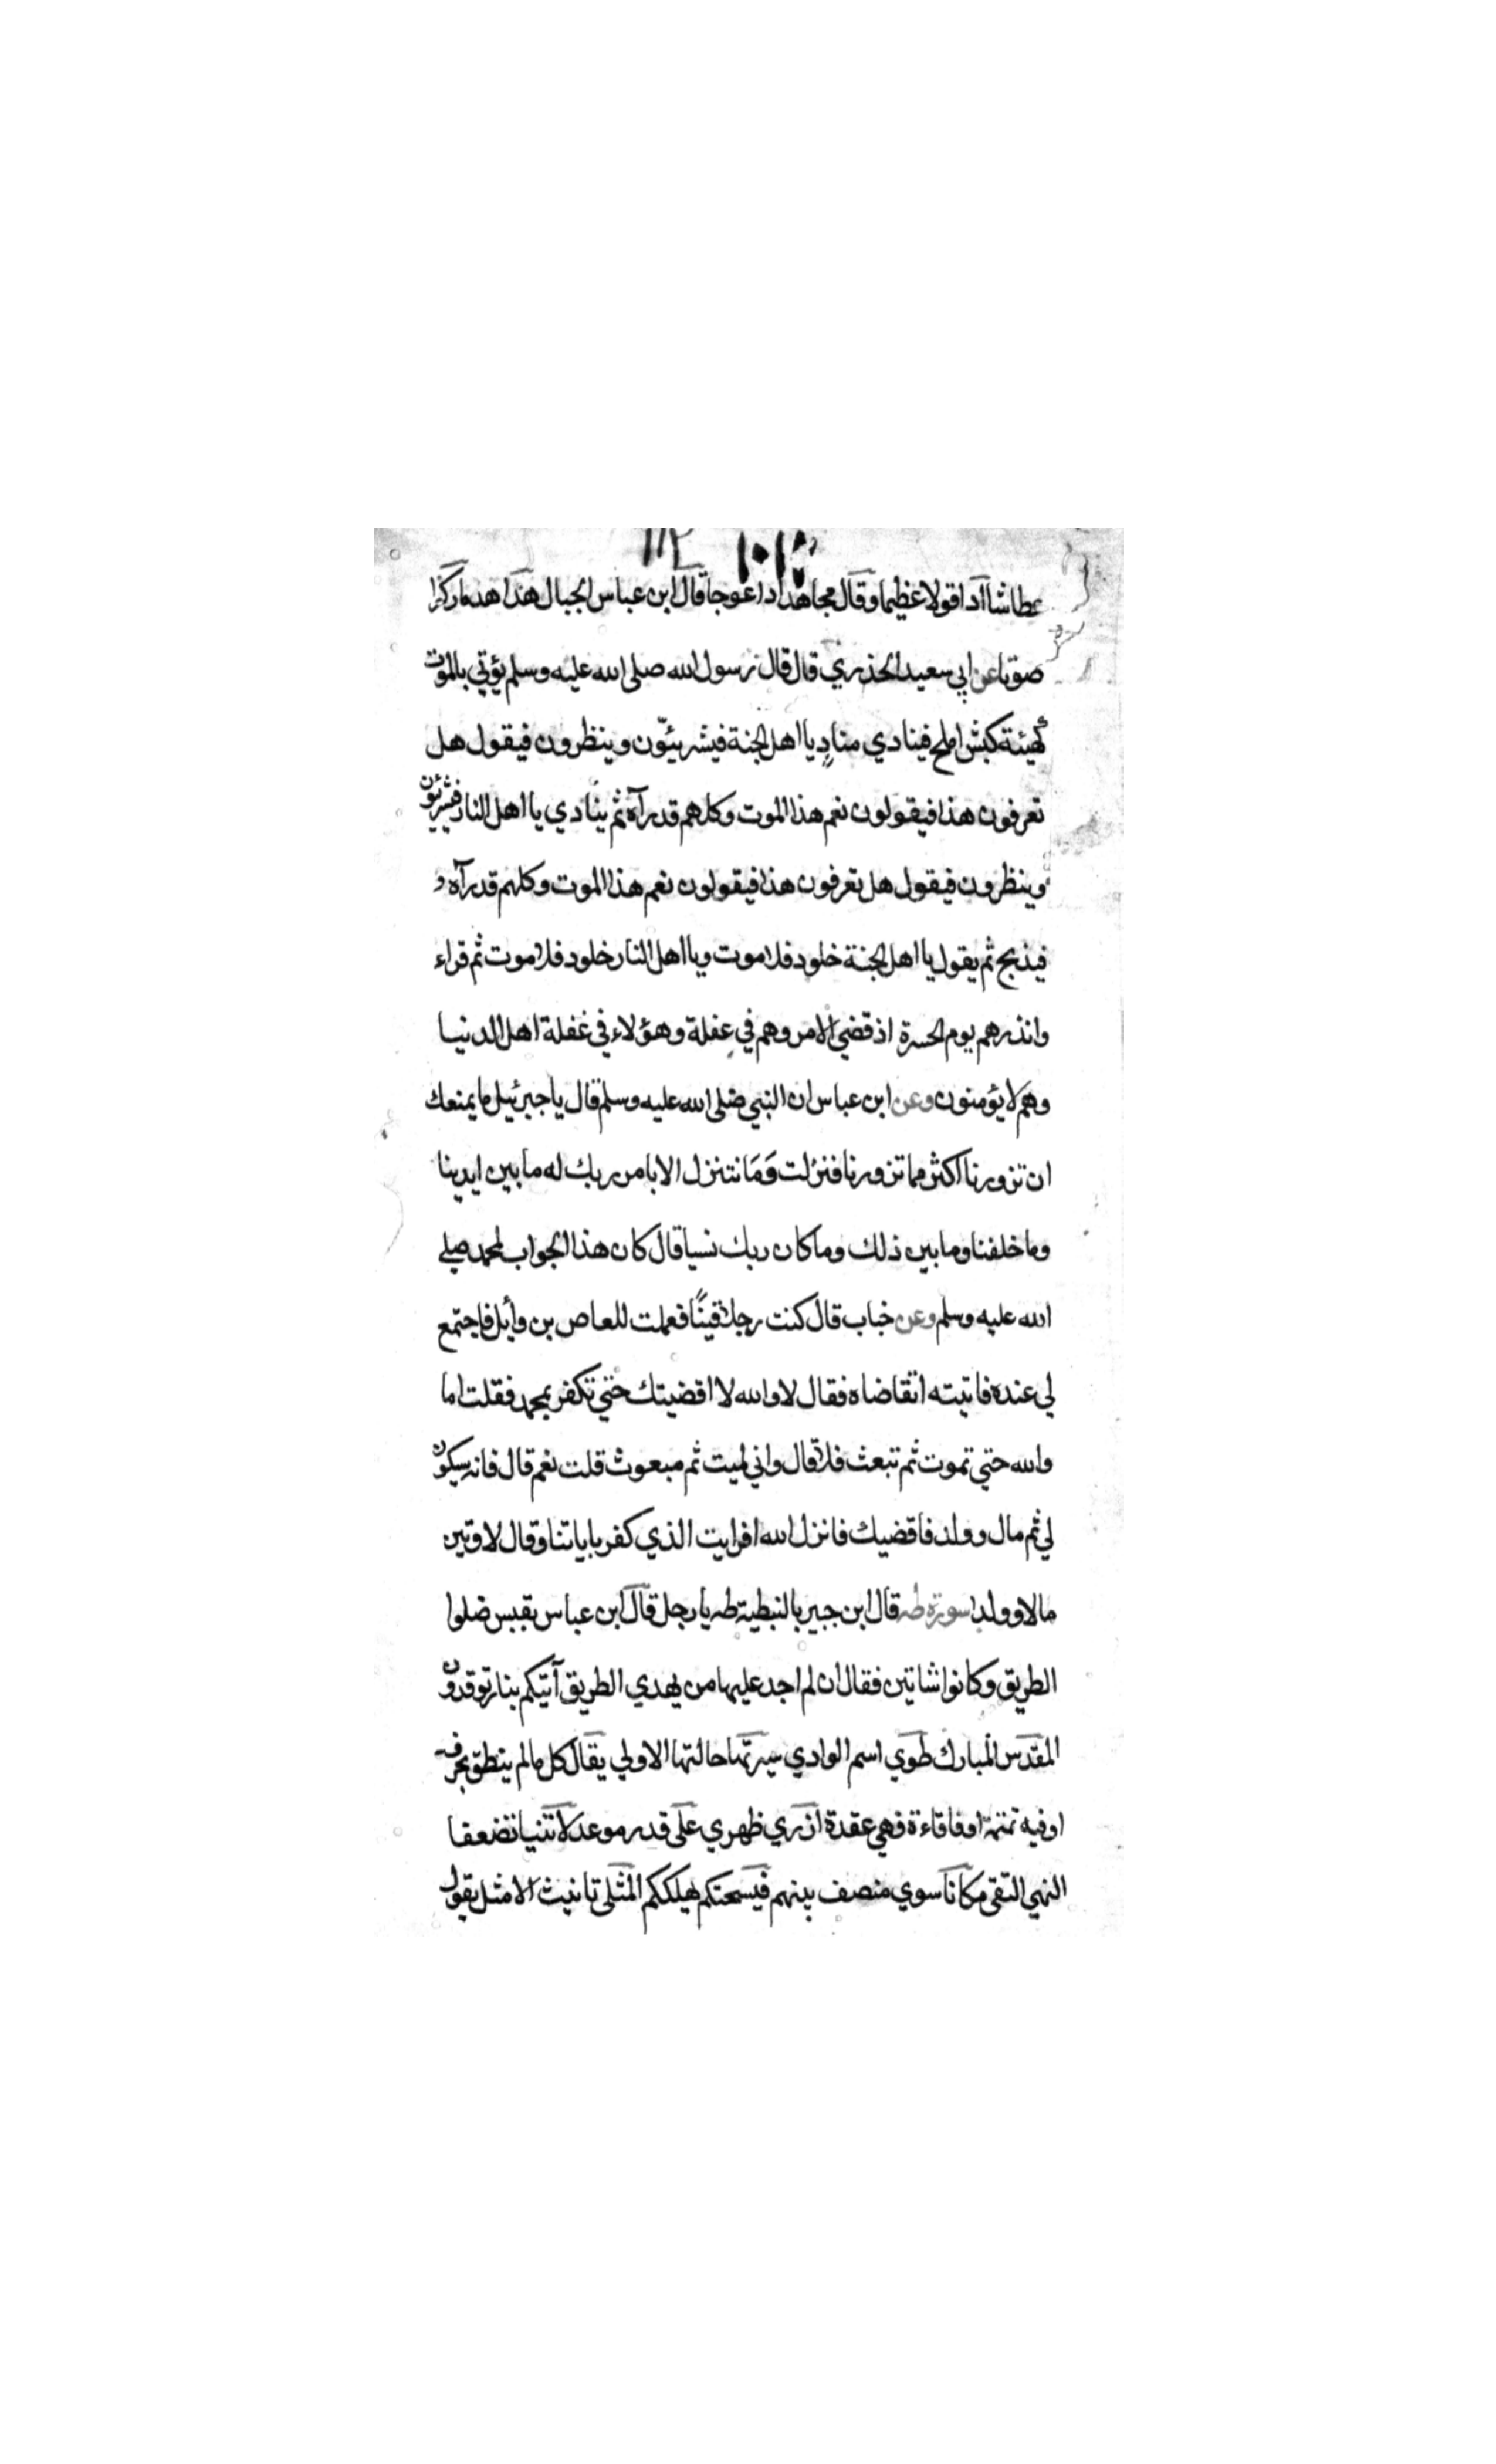 ١٠١٧ ١١٢
عطاشا ادا قولا عظيما وقال مجاهد ادا عوجا قال ابن عباس الجبال هدا هدما ركزا
صوتا عن ابي سعيد الخذري قال قال رسول الله صلى الله عليه وسلم يؤتي بالموت
كهيئة كبش املح فينادي منادٍ يا اهل الجنة فيشريئبّون وينظرون فيقول هل
تعرفون هذا فيقولون نعم هذا الموت وكلهم قد رآه ثم ينادي يا اهل النار فيشريئبون
وينظرون فيقول هل تعرفون هذا فيقولون نعم هذا الموت وكلهم قد رآه و
فيذبح ثم يقول يا اهل الجنة خلود فلا موت ويا اهل النار خلود فلا موت ثم قراء
وانذرهم يوم الحسرة اذ قضي الامر وهم في غفلة وهؤلاء في غفلة اهل الدنيا
وهم لا يؤمنون وعن ابن عباس ان النبي صلى الله عليه وسلم قال يا جبرئيل ما يمنعك
ان تزورنا اكثر مما تزورنا فنزلت وَمَا نتنزل الا بامر ربك له ما بين ايدينا
وما خلفنا وما بين ذلك وما كان ربك نسيا قال كان هذا الجواب لمحمد صلي
الله عليه وسلم وعن خباب قال كنت رجلا قينًا فعملت للعاص بن وائل فاجتمع
لي عنده فاتيته اتقاضاه فقال لا والله لا اقضيتك حتي تكفر بمحمد فقلت اما
والله حتي تموت ثم تبعث فلا قال واني لميت ثم مبعوث قلت نعم قال فانه سيكون
لي ثم مال وولد فاقضيك فانزل الله افرايت الذي كفر باياتنا وقال لاوتين
مالا وولدا سورة طه قال ابن جبير بالنبطية طه يا رجل قال ابن عباس بقبس ضلوا
الطريق وكانوا شاتين فقال ان لم اجد عليها من يهدي الطريق آتيكم بنار توقدون
المقدس المبارك طوي اسم الوادي سيرتها حالتها الاولي يقال كل ما لم ينطق بحرف
او فيه تمتمة او فاقاءة فهي عقدة ازري ظهري على قدر موعد لا تنيا تضعفا
النهي التقى مكانا سوي منصف بينهم فيسحتكم يهلككم المثلى تانيث الامثل يقول